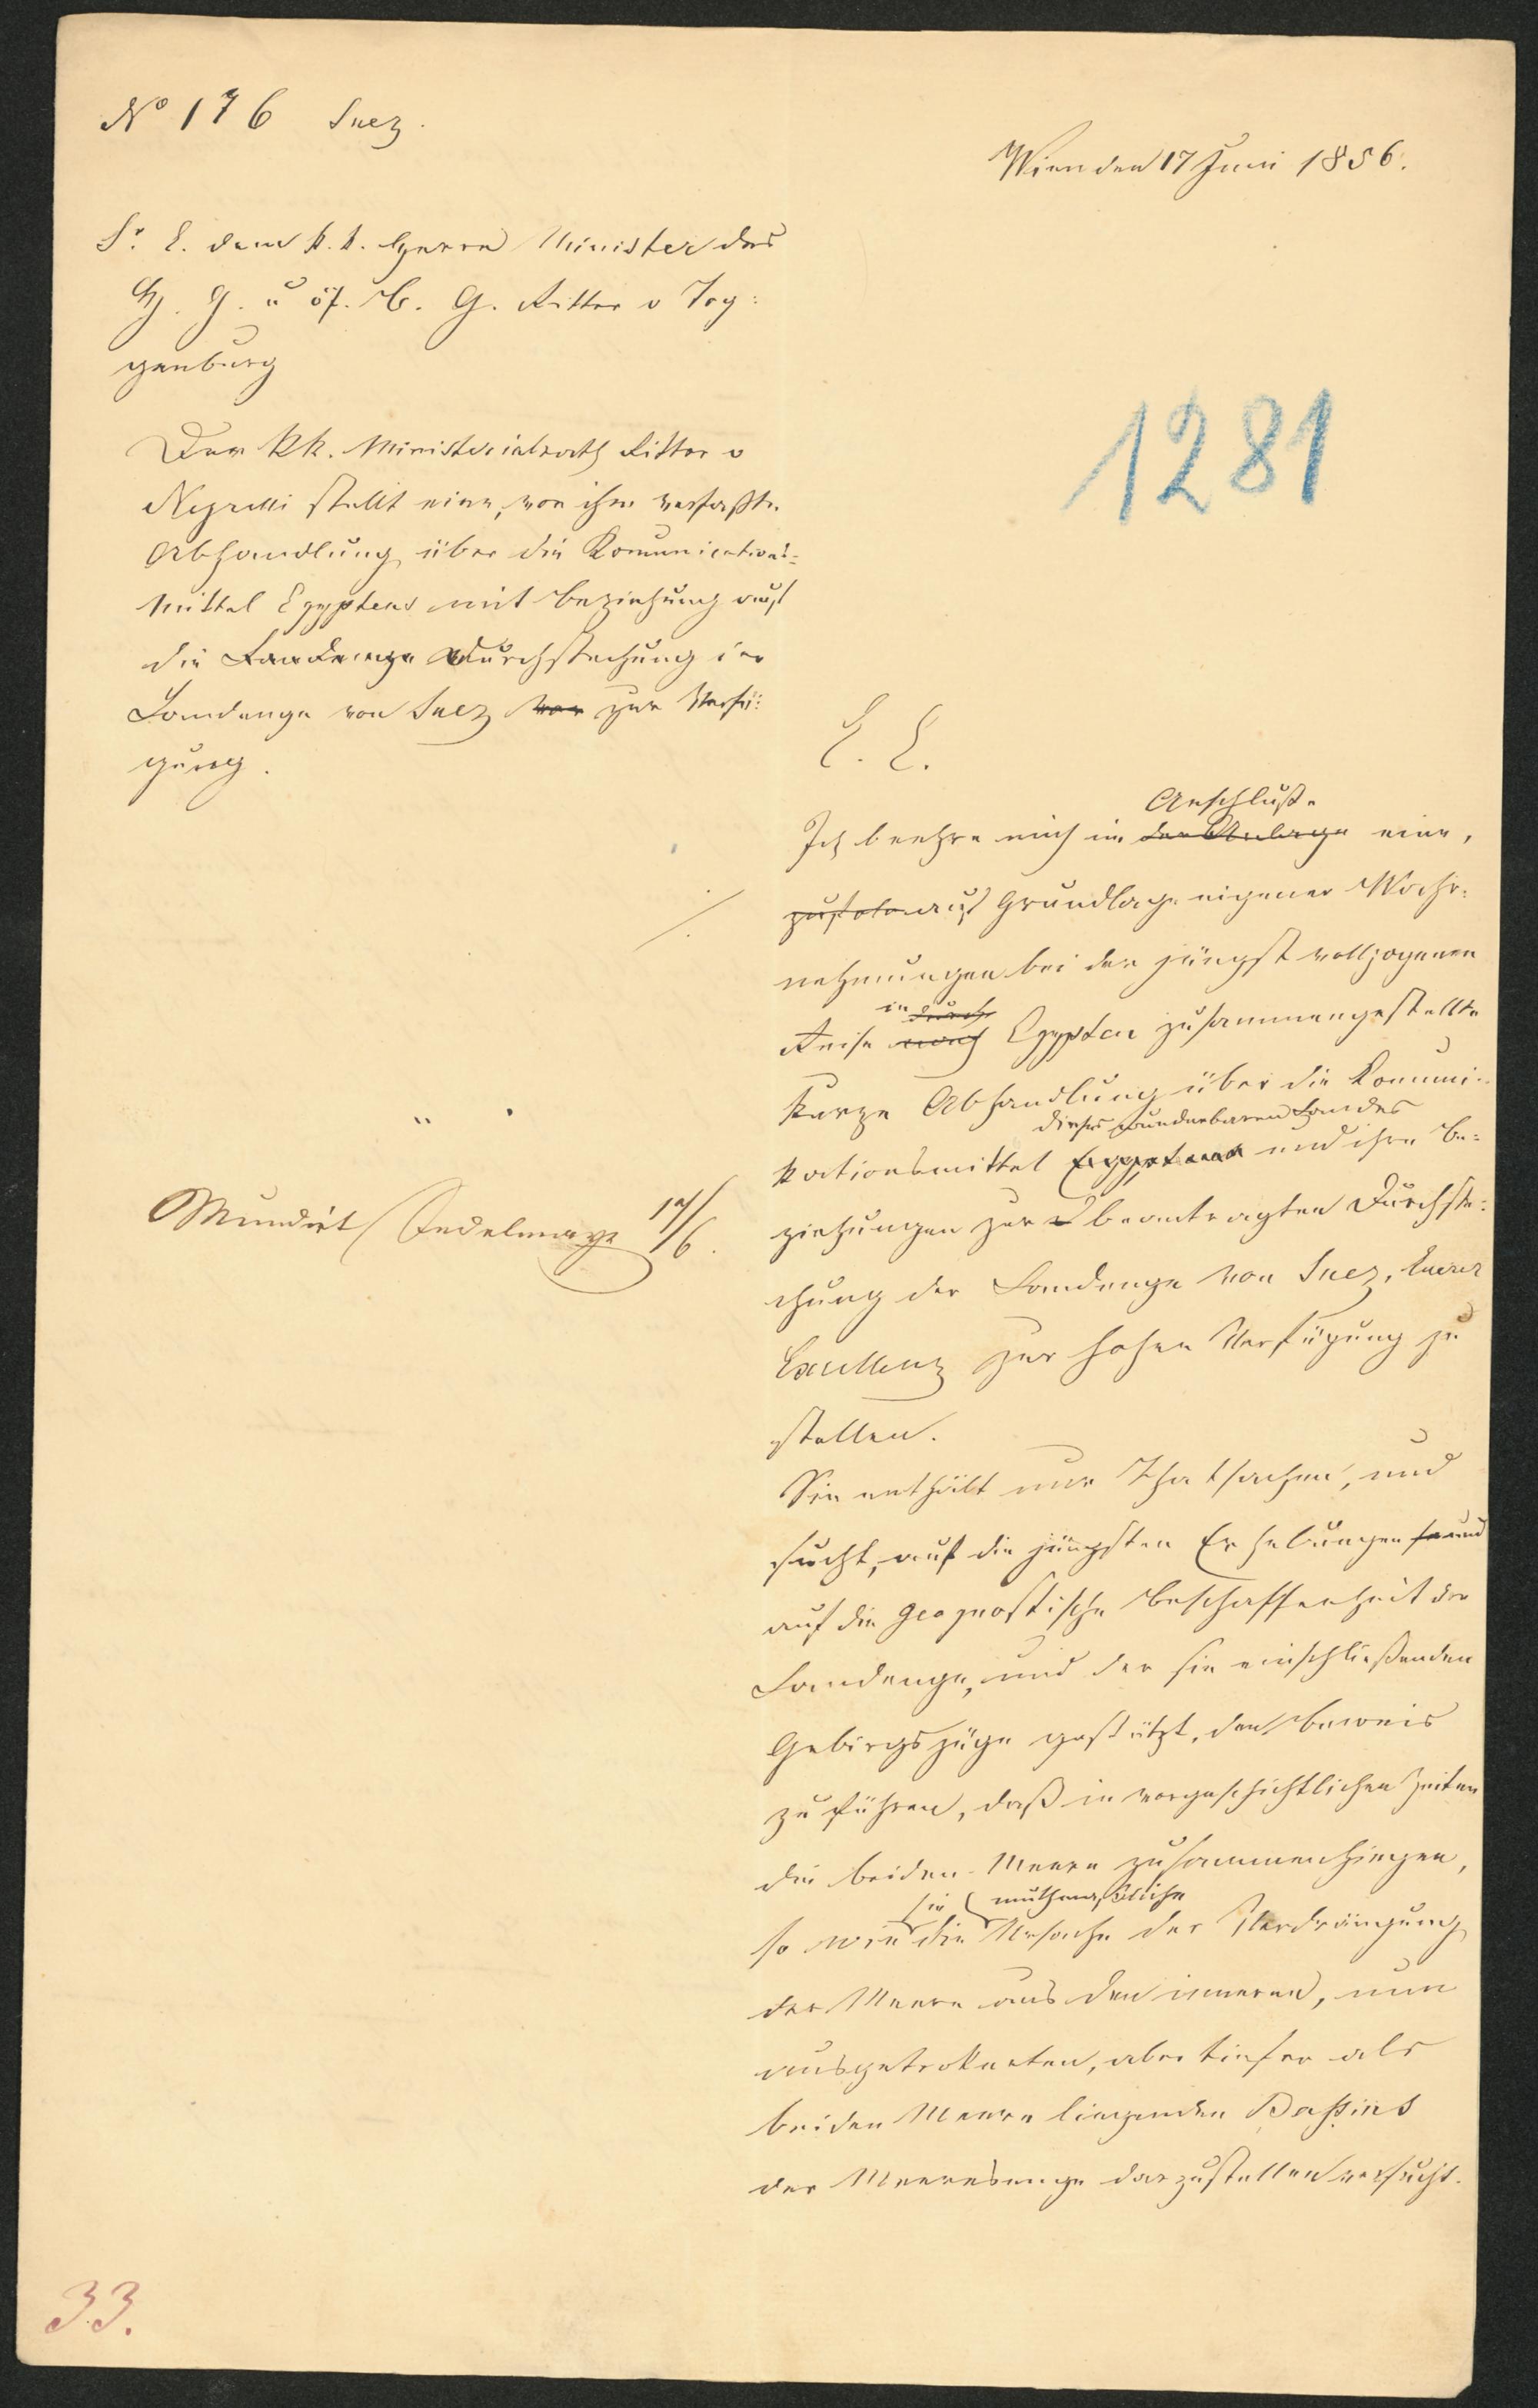 No 176 Suez.
Wien den 17 Juni 1856.
Sr. E. dem k. k. Herrn Minister des
H. G. u öf. B. G. Ritter v Tog:
genburg
Der k k. Ministerialrath Ritter v
Negrelli stellt eine, von ihm verfaßte
Abhandlung über die Komunications-
Mittel Egyptens mit Beziehung auf
die Landenge Durchstechung der
Landenge von Suez zur Verfü:
gung.
1281
E. E.
Anschluße
Ich beehre mich im der Anlage eine,
auf Grundlage eigener Wahr:
nehmungen bei der jüngst vollzogenen
in durch
Reise nach Egypten zusammengestellte
kurze Abhandlung über die Komuni:
dieses wunderbaren Landes
kationsmittel Egyptens und ihre Be:
ziehungen zur beantragten Durchste:
chung der Landenge von Suez, Euerer
Excellenz zur hohen Verfügung zu
stellen.
Mundirt 17/6.
Sie enthält nur Thatsachen, und
sucht, auf die jüngsten Erhebungen und
auf die geognostische Beschaffenheit der
Landenge, und der sie einschließenden
Gebirgszüge gestützt, den Beweis
zu führen, daß in vorgeschichtlichen Zeiten
die beiden Meere zusammenhingen,
sie muthmaßliche
so wie die Ursache der Verdrängung
der Meere aus den inneren, nun
ausgetrokneten, aber tiefer als
beiden Meere liegenden Bassins
der Meeresenge darzustellen versucht.
33.